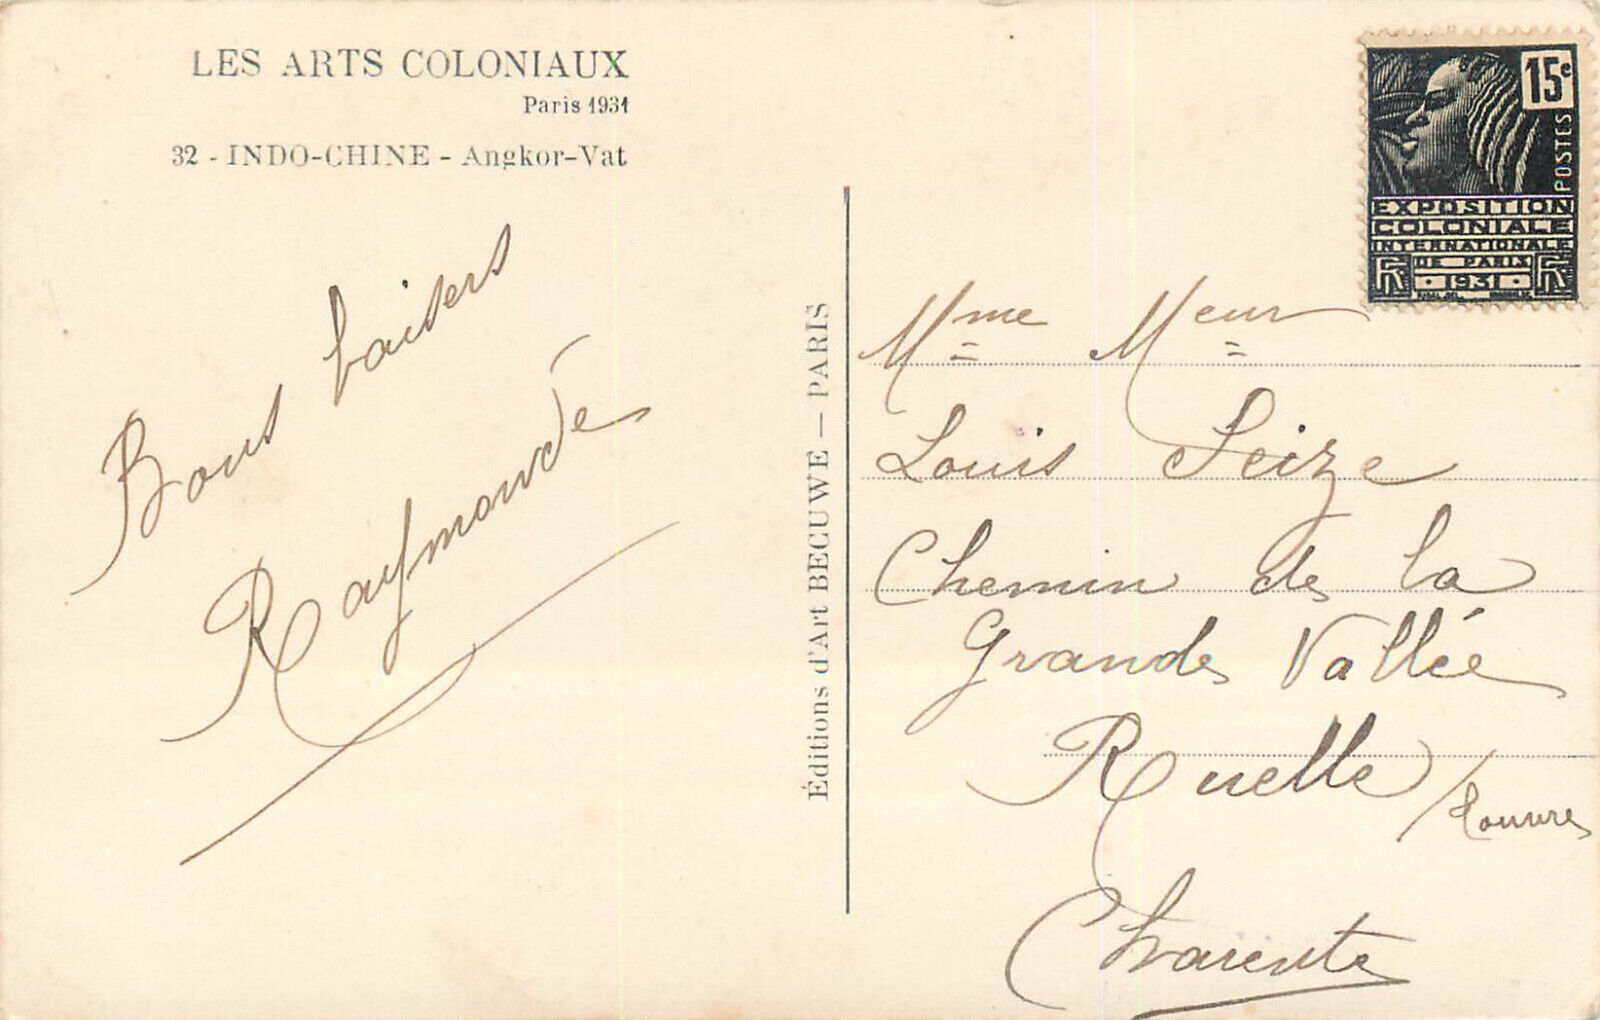 LES ARTS COLONIAUX
Paris 1931
32 - INDO-CHINE - Angkor-Vat
Bons baisers
Raymonde
Éditions d'Art BECUWE — PARIS
15c
POSTES
EXPOSITION
COLONIALE
INTERNATIONALE
DE PARIS
RF · 1931 · RF
Mme Meur
Louis Seize
Chemin de la
Grande Vallée
Ruelle /Touvre
Charente